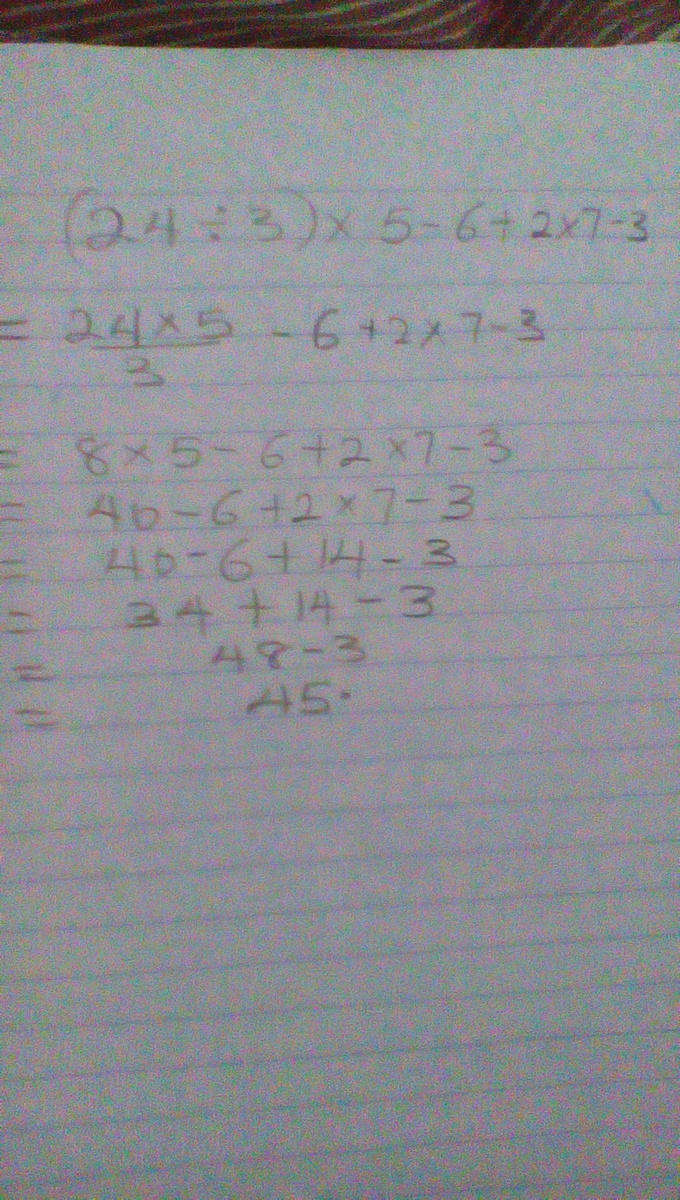 (24÷3)×5-6+2×7-3
= 24×5/3 -6+2×7-3
= 8×5-6+2×7-3
= 40-6+2×7-3
= 40-6+14-3
= 34+14-3
= 48-3
= 45.